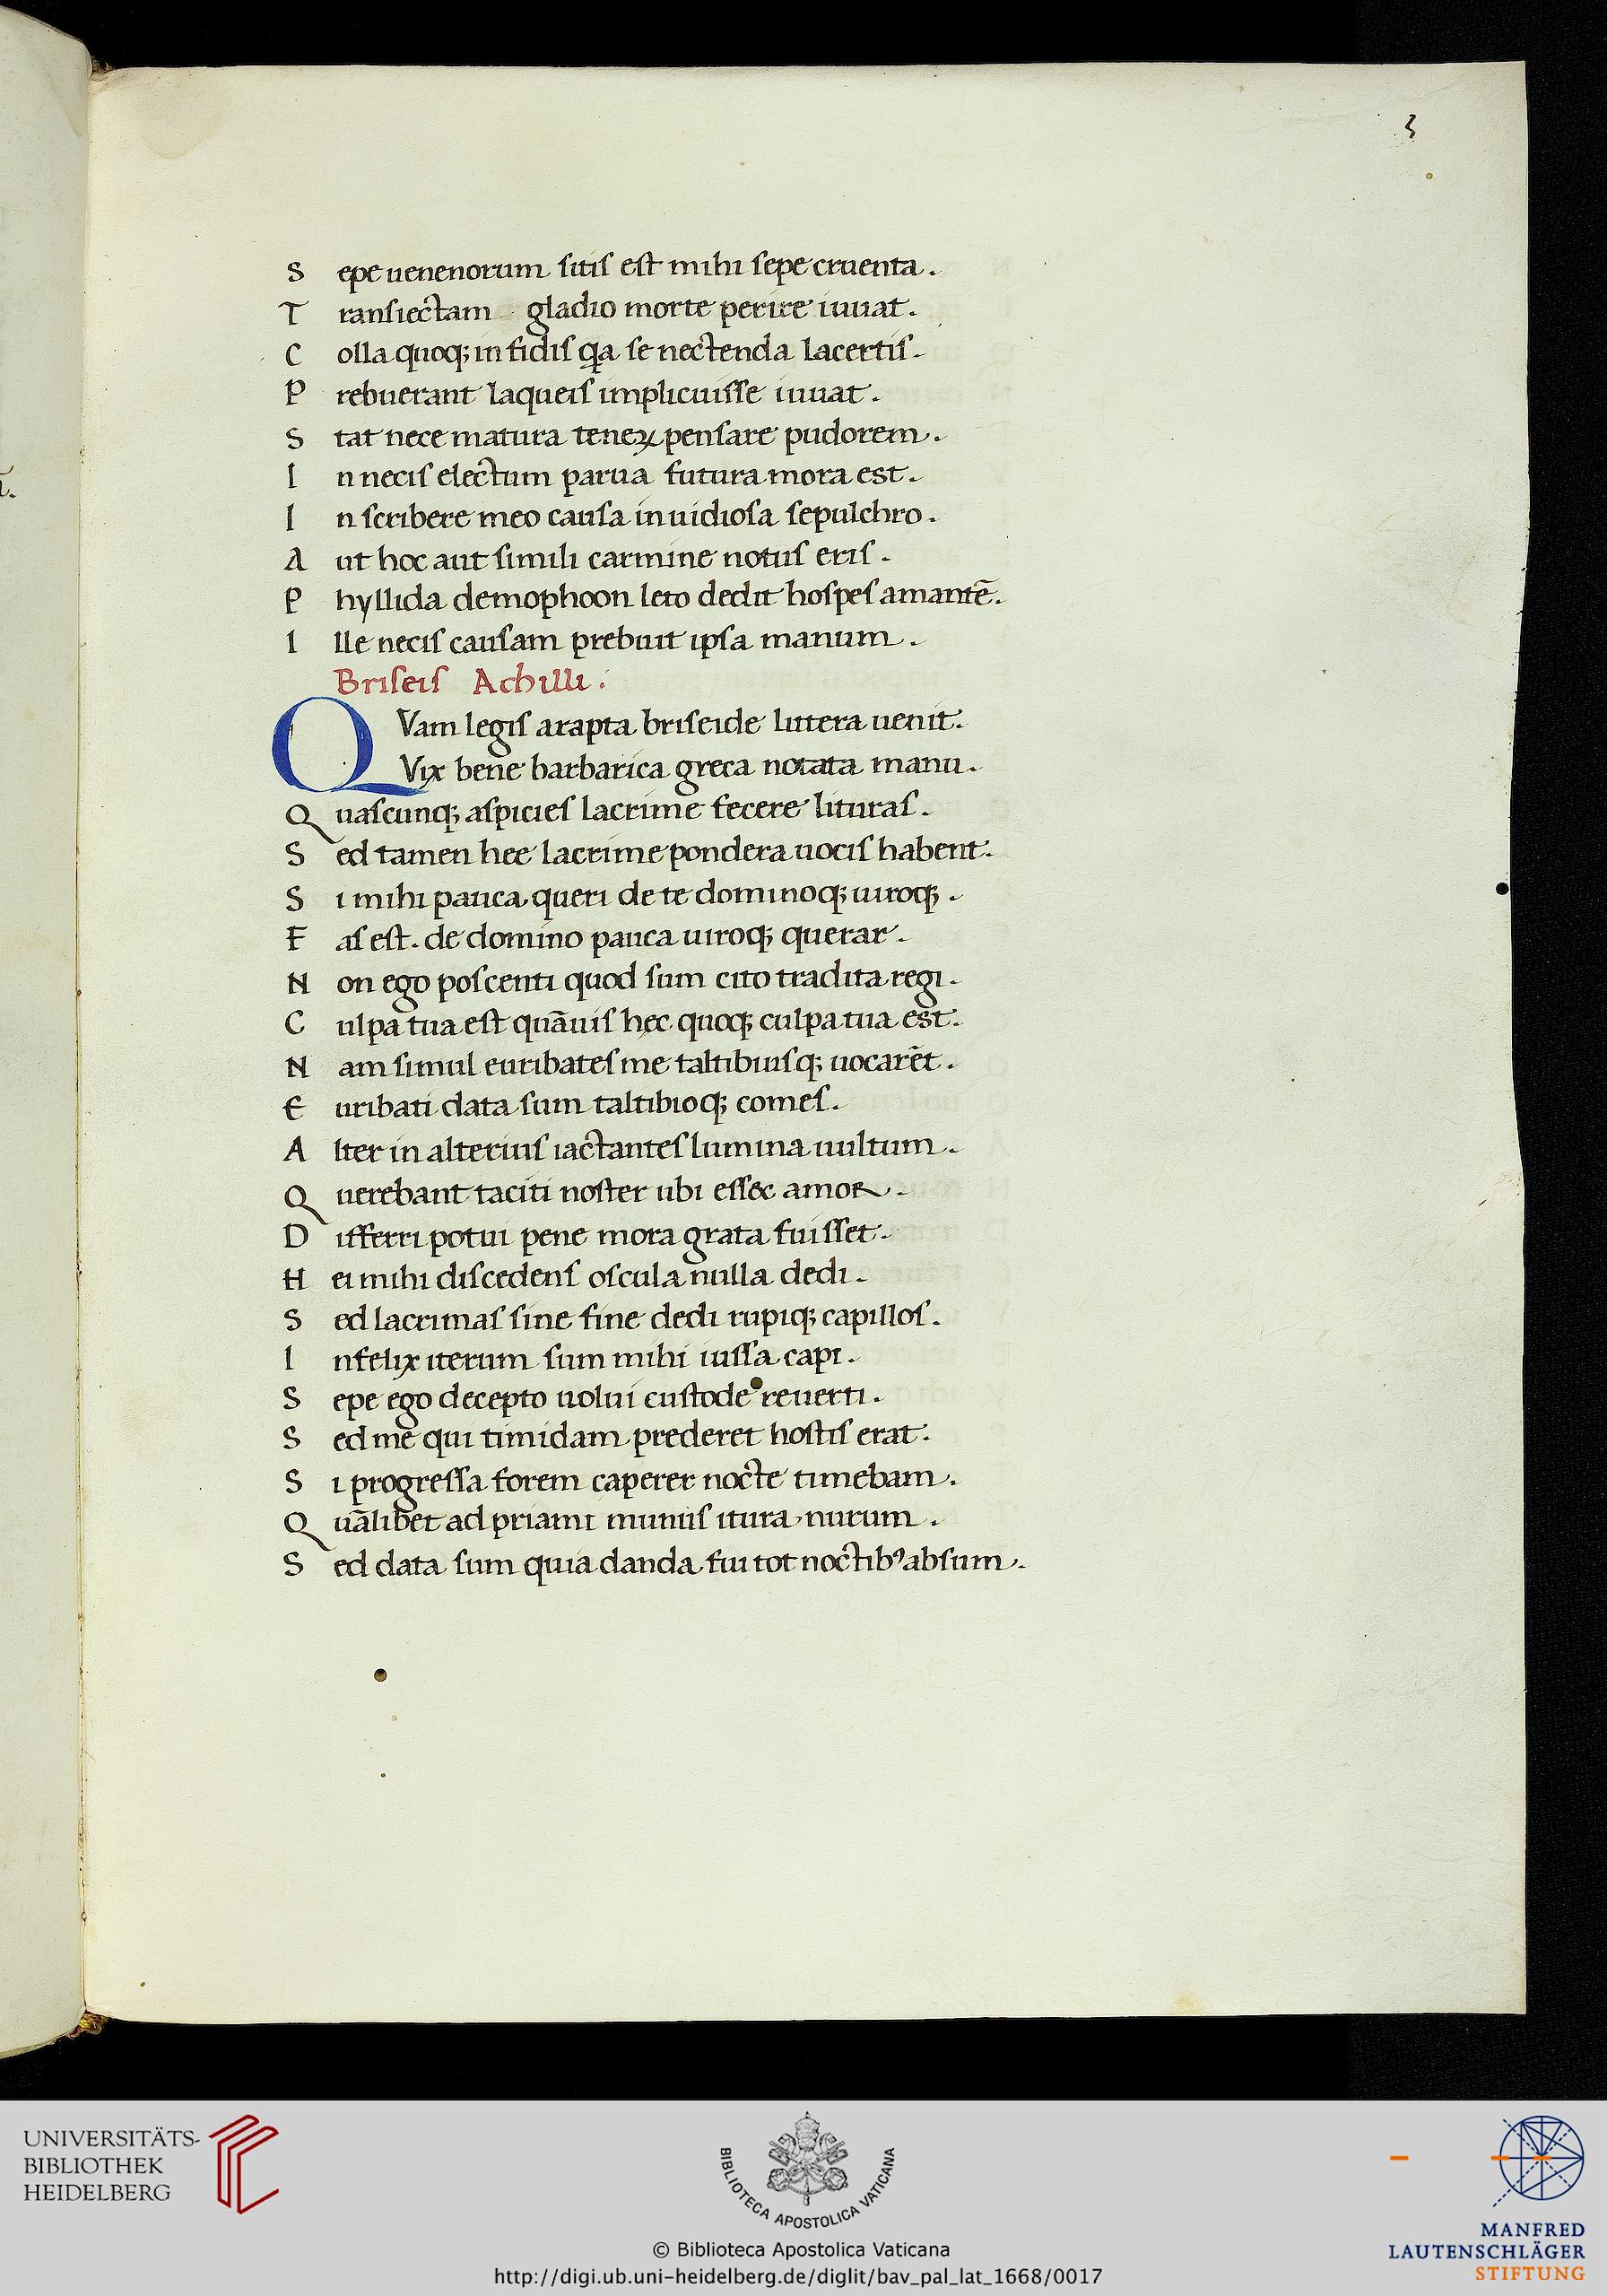 3
S epe uenenorum sitis est mihi sepe cruenta.
T ransiectam gladio morte perire iuuat.
C olla quoq; in fidis q̄a se nectenda lacertis.
P rebuerant laqueis implicuisse iuuat.
S tat nece matura teneꝝ pensare pudorem.
I n necis electum parua futura mora est.
I n scribere meo causa inuidiosa sepulchro.
A ut hoc aut simili carmine notus eris.
P hyllida demophoon leto dedit hospes amantē.
I lle necis causam prebuit ipsa manum.
Briseis Achilli:
Q Vam legis arapta briseide littera uenit.
Vix bene barbarica greca notata manu.
Q uascunq; aspicies lacrime fecere lituras.
S ed tamen hee lacrime pondera uocis habent.
S i mihi pauca queri de te dominoq; uiroq;.
F as est. de domino pauca uiroq; querar.
N on ego poscenti quod sum cito tradita regi.
C ulpa tua est quāuis hęc quoq; culpa tua est.
N am simul euribates me taltibiusq; uocarēt.
E uribati data sum taltibioq; comes.
A lter in alterius iactantes lumina uultum.
Q uerebant taciti noster ubi esset amor.
D ifferri potui pene mora grata fuisset.
H ei mihi discedens oscula nulla dedi.
S ed lacrimas sine fine dedi rupiq; capillos.
I nfelix iterum sum mihi iussa capi.
S epe ego decepto uolui custode reuerti.
S ed me qui timidam prederet hostis erat.
S i progressa forem caperer nocte timebam.
Q uālibet ad priami munus itura nurum.
S ed data sum quia danda fui tot noctibꝰ absum.
UNIVERSITÄTS-
BIBLIOTHEK
HEIDELBERG
BIBLIOTECA APOSTOLICA VATICANA
© Biblioteca Apostolica Vaticana
http://digi.ub.uni-heidelberg.de/diglit/bav_pal_lat_1668/0017
MANFRED
LAUTENSCHLÄGER
STIFTUNG